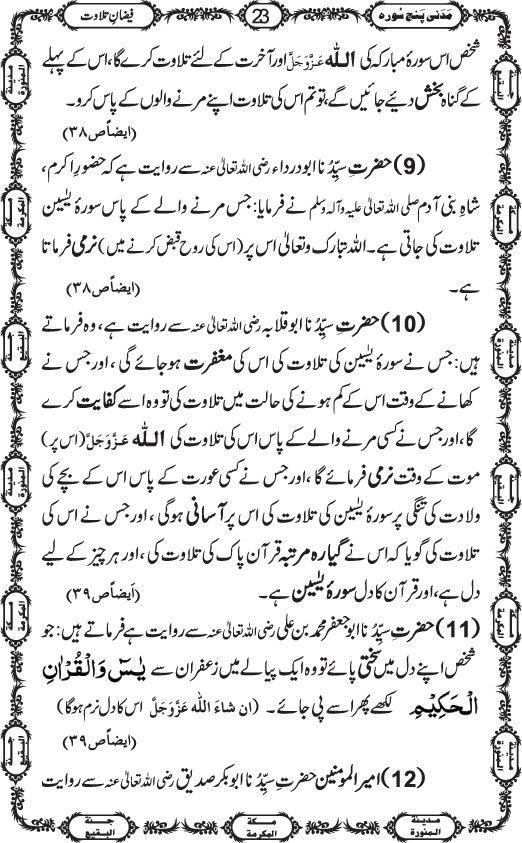 مَدَنی پَنج سُورہ
23
فیضانِ تلاوت
شخص اس سورۂ مبارکہ کی اللہ عَزَّوَجَلَّ اور آخرت کے لئے تلاوت کرے گا، اس کے پہلے
کے گناہ بخش دیئے جائیں گے، تو تم اس کی تلاوت اپنے مرنے والوں کے پاس کرو۔
(ایضاً ص۳۸)
(9) حضرتِ سیِّدُنا ابودرداء رضی اللہ تعالیٰ عنہ سے روایت ہے کہ حضورِ اکرم،
شاہِ بنی آدم صلی اللہ تعالیٰ علیہ واٰلہٖ وسلم نے فرمایا: جس مرنے والے کے پاس سورۂ یٰسٓین
تلاوت کی جاتی ہے۔ اللہ تبارک وتعالیٰ اس پر (اس کی روح قبض کرنے میں) نرمی فرماتا
ہے۔
(ایضاً ص۳۸)
(10) حضرتِ سیِّدُنا ابوقلابہ رضی اللہ تعالیٰ عنہ سے روایت ہے، وہ فرماتے
ہیں: جس نے سورۂ یٰسٓین کی تلاوت کی اس کی مغفرت ہوجائے گی ، اور جس نے
کھانے کے وقت اس کے کم ہونے کی حالت میں تلاوت کی تو وہ اسے کفایت کرے
گا، اور جس نے کسی مرنے والے کے پاس اس کی تلاوت کی اللہ عَزَّوَجَلَّ (اس پر)
موت کے وقت نرمی فرمائے گا ، اور جس نے کسی عورت کے پاس اس کے بچے کی
ولادت کی تنگی پر سورۂ یٰسٓین کی تلاوت کی اس پر آسانی ہوگی ، اور جس نے اس کی
تلاوت کی گویا کہ اس نے گیارہ مرتبہ قرآن پاک کی تلاوت کی ، اور ہر چیز کے لیے
دل ہے، اور قرآن کا دل سورۂ یٰسٓین ہے۔
(اَیضاً ص۳۹)
(11) حضرتِ سیِّدُنا ابو جعفر محمد بن علی رضی اللہ تعالیٰ عنہ سے روایت ہے فرماتے ہیں: جو
شخص اپنے دل میں سختی پائے تو وہ ایک پیالے میں زعفران سے یٰسٓ وَالْقُرْاٰنِ
الْحَكِيْمِ لکھے پھر اسے پی جائے۔ (ان شاءَ اللہ عَزَّوَجَلَّ اس کا دل نرم ہوگا)
(ایضاً ص۳۹)
(12) امیر المومنین حضرتِ سیِّدُنا ابوبکر صدیق رضی اللہ تعالیٰ عنہ سے روایت
مدینۃ المنورۃ
جنۃ البقیع
مکۃ المکرمۃ
مدینۃ المنورۃ
جنۃ البقیع
مکۃ المکرمۃ
مدینۃ المنورۃ
جنۃ البقیع
مکۃ المکرمۃ
جنۃ البقیع
مدینۃ المنورۃ
مکۃ المکرمۃ
جنۃ البقیع
مدینۃ المنورۃ
مکۃ المکرمۃ
جنۃ البقیع